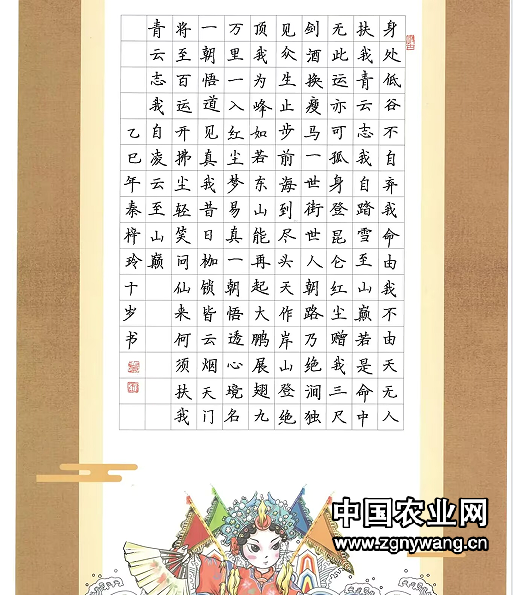 身处低谷不自弃我命由我不由天无人
扶我青云志我自踏雪至山巅若是命中
无此运亦可孤身登昆仑红尘赠我三尺
剑酒换瘦马一世街世人朝路乃绝涧独
见众生止步前海到尽头天作岸山登绝
顶我为峰如若东山能再起大鹏展翅九
万里一入红尘梦易真一朝悟透心境名
一朝悟道见真我昔日枷锁皆云烟天门
将至百运开拂尘轻笑问仙来何须扶我
青云志我自凌云至山巅
乙巳年秦梓玲十岁书
中国农业网
www.zgnywang.cn